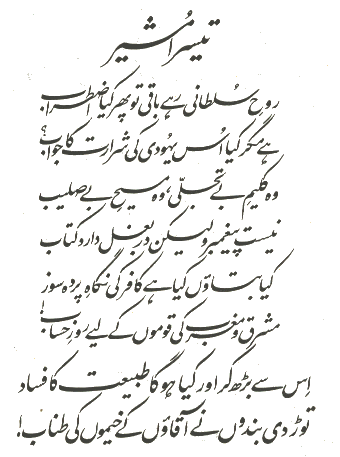 تیسرا مُشیر
روحِ سُلطانی رہے باقی تو پھر کیا اضطراب
ہے مگر کیا اُس یہُودی کی شرارت کا جواب؟
وہ کلیمِ بے تجلّی، وہ مسیحِ بے صلیب
نیست پیغمبر ولیکن در بغل دارد کتاب
کیا بتاؤں کیا ہے کافر کی نگاہِ پردہ سوز
مشرق و مغرب کی قوموں کے لیے روزِ حساب!
اِس سے بڑھ کر اور کیا ہوگا طبیعت کا فساد
توڑ دی بندوں نے آقاؤں کے خیموں کی طناب!